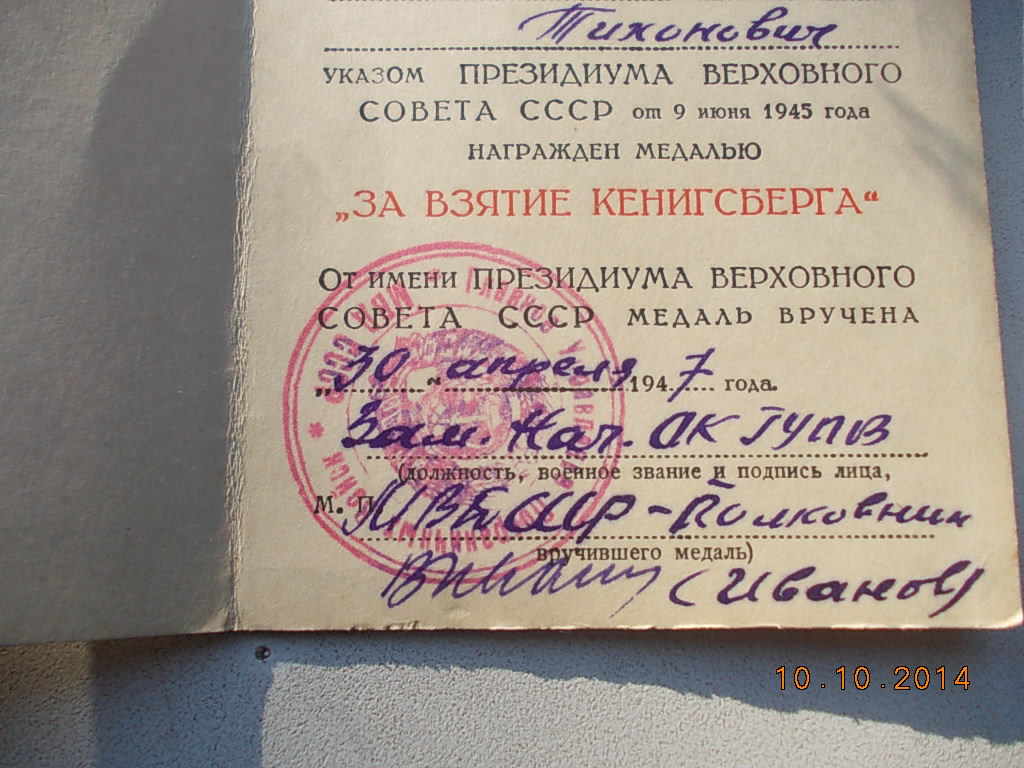 Тихонович
УКАЗОМ ПРЕЗИДИУМА ВЕРХОВНОГО
СОВЕТА СССР от 9 июня 1945 года
НАГРАЖДЕН МЕДАЛЬЮ
„ЗА ВЗЯТИЕ КЕНИГСБЕРГА“
От имени ПРЕЗИДИУМА ВЕРХОВНОГО
СОВЕТА СССР МЕДАЛЬ ВРУЧЕНА
„30 “ апреля 1947 года.
Зам. Нач. ОК ГУПВ
(должность, военное звание и подпись лица,
М. П. МВД СССР - Полковник
вручившего медаль)
(Иванов)
10.10.2014